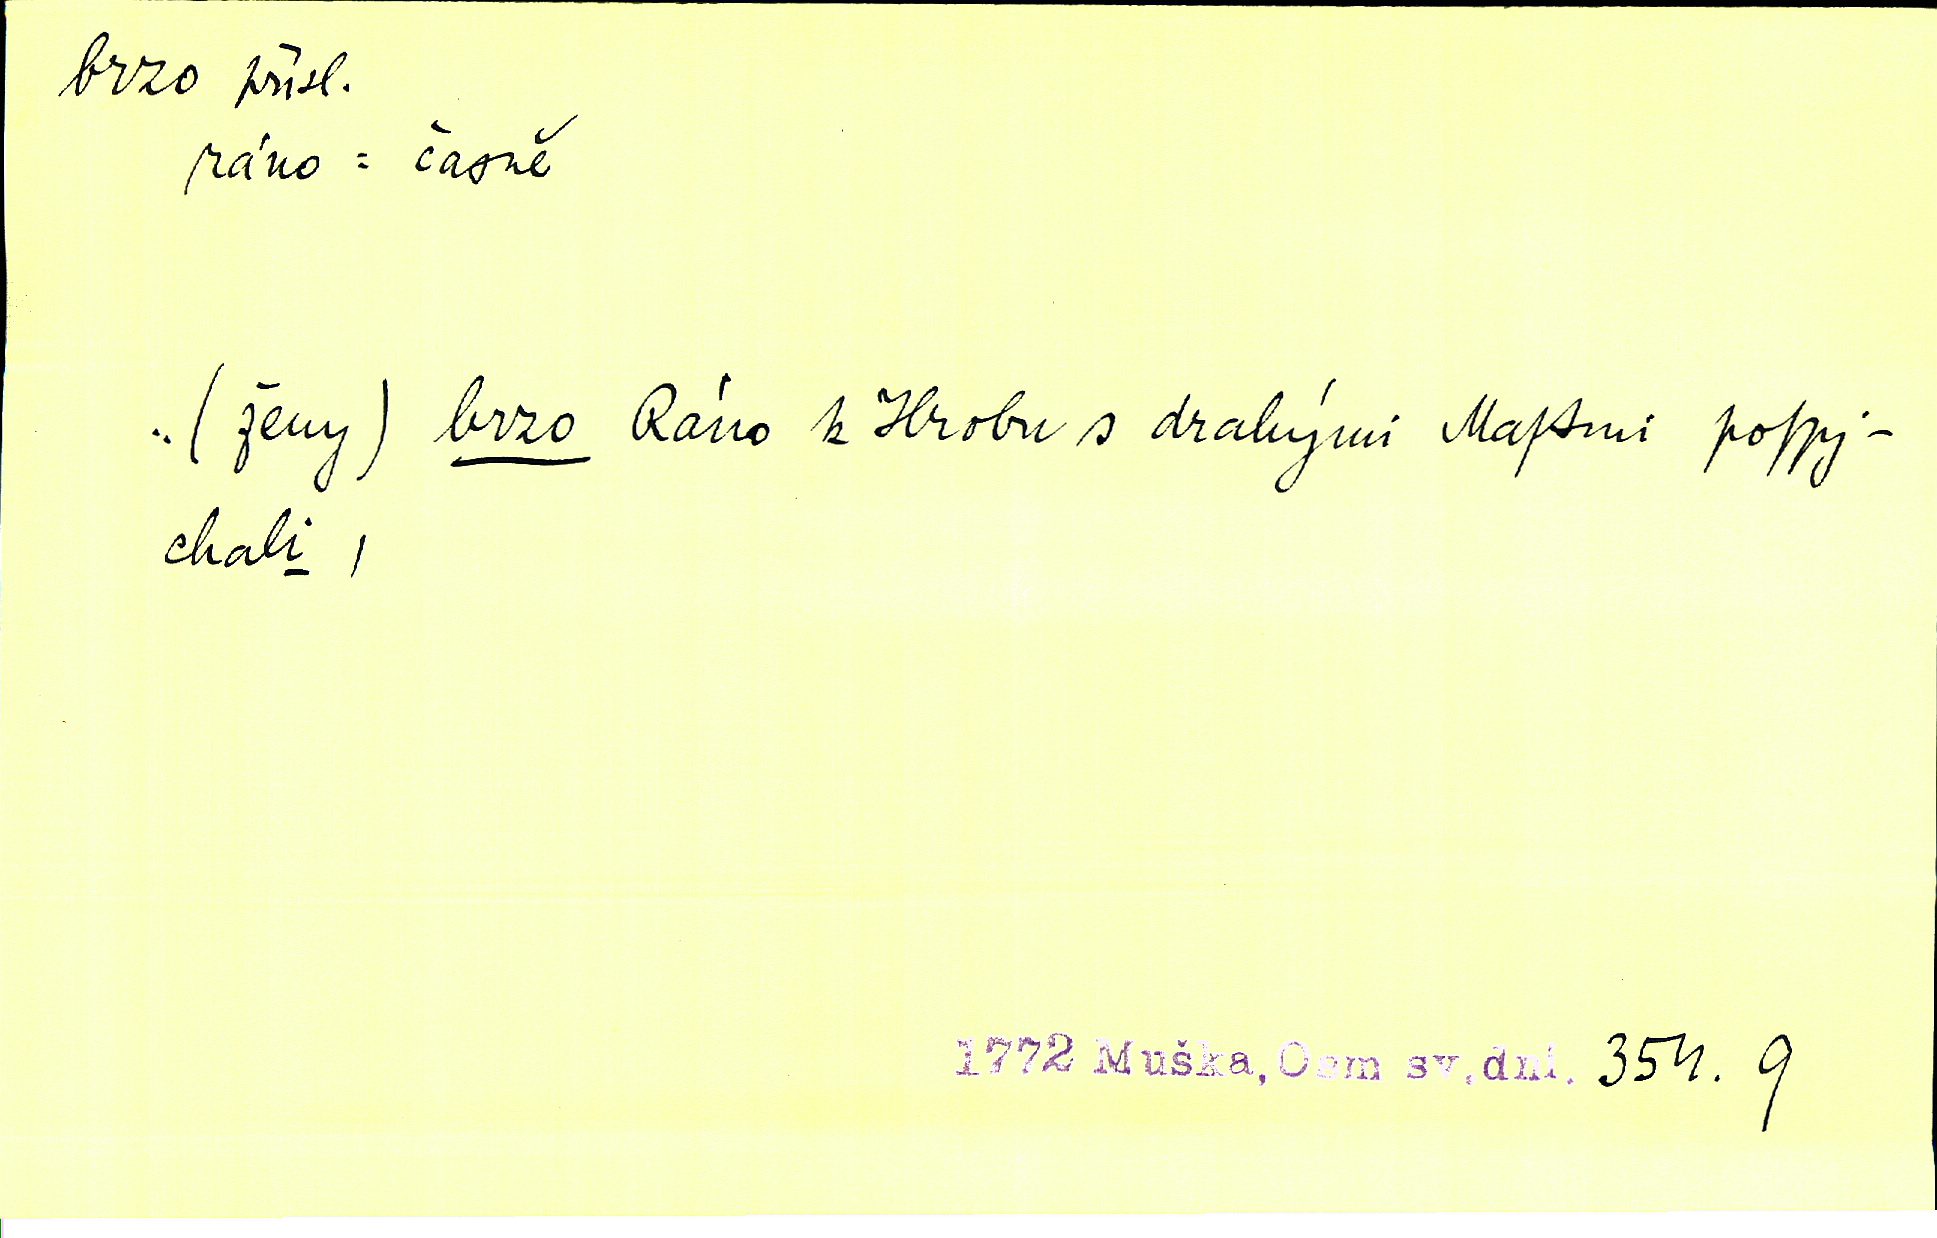 brzo přísl.
ráno = časně
..(ženy) brzo Ráno k Hrobu s drahými Maſtmi poſpj-
chali,
1772 Muška, Osm sv. dni. 354. 9